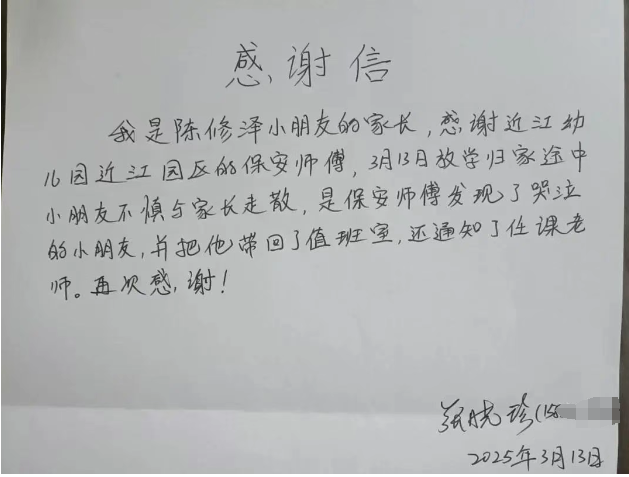 感谢信
我是陈修泽小朋友的家长,感谢近江幼
儿园近江园区的保安师傅,3月13日放学归家途中
小朋友不慎与家长走散,是保安师傅发现了哭泣
的小朋友,并把他带回了值班室,还通知了任课老
师。再次感谢!
张晓珍(158
2025年3月13日